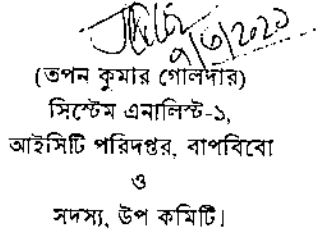 ৭/৩/২০২১
(তপন কুমার গোলদার)
সিস্টেম এনালিস্ট-১,
আইসিটি পরিদপ্তর, বাপবিবো
ও
সদস্য, উপ কমিটি।